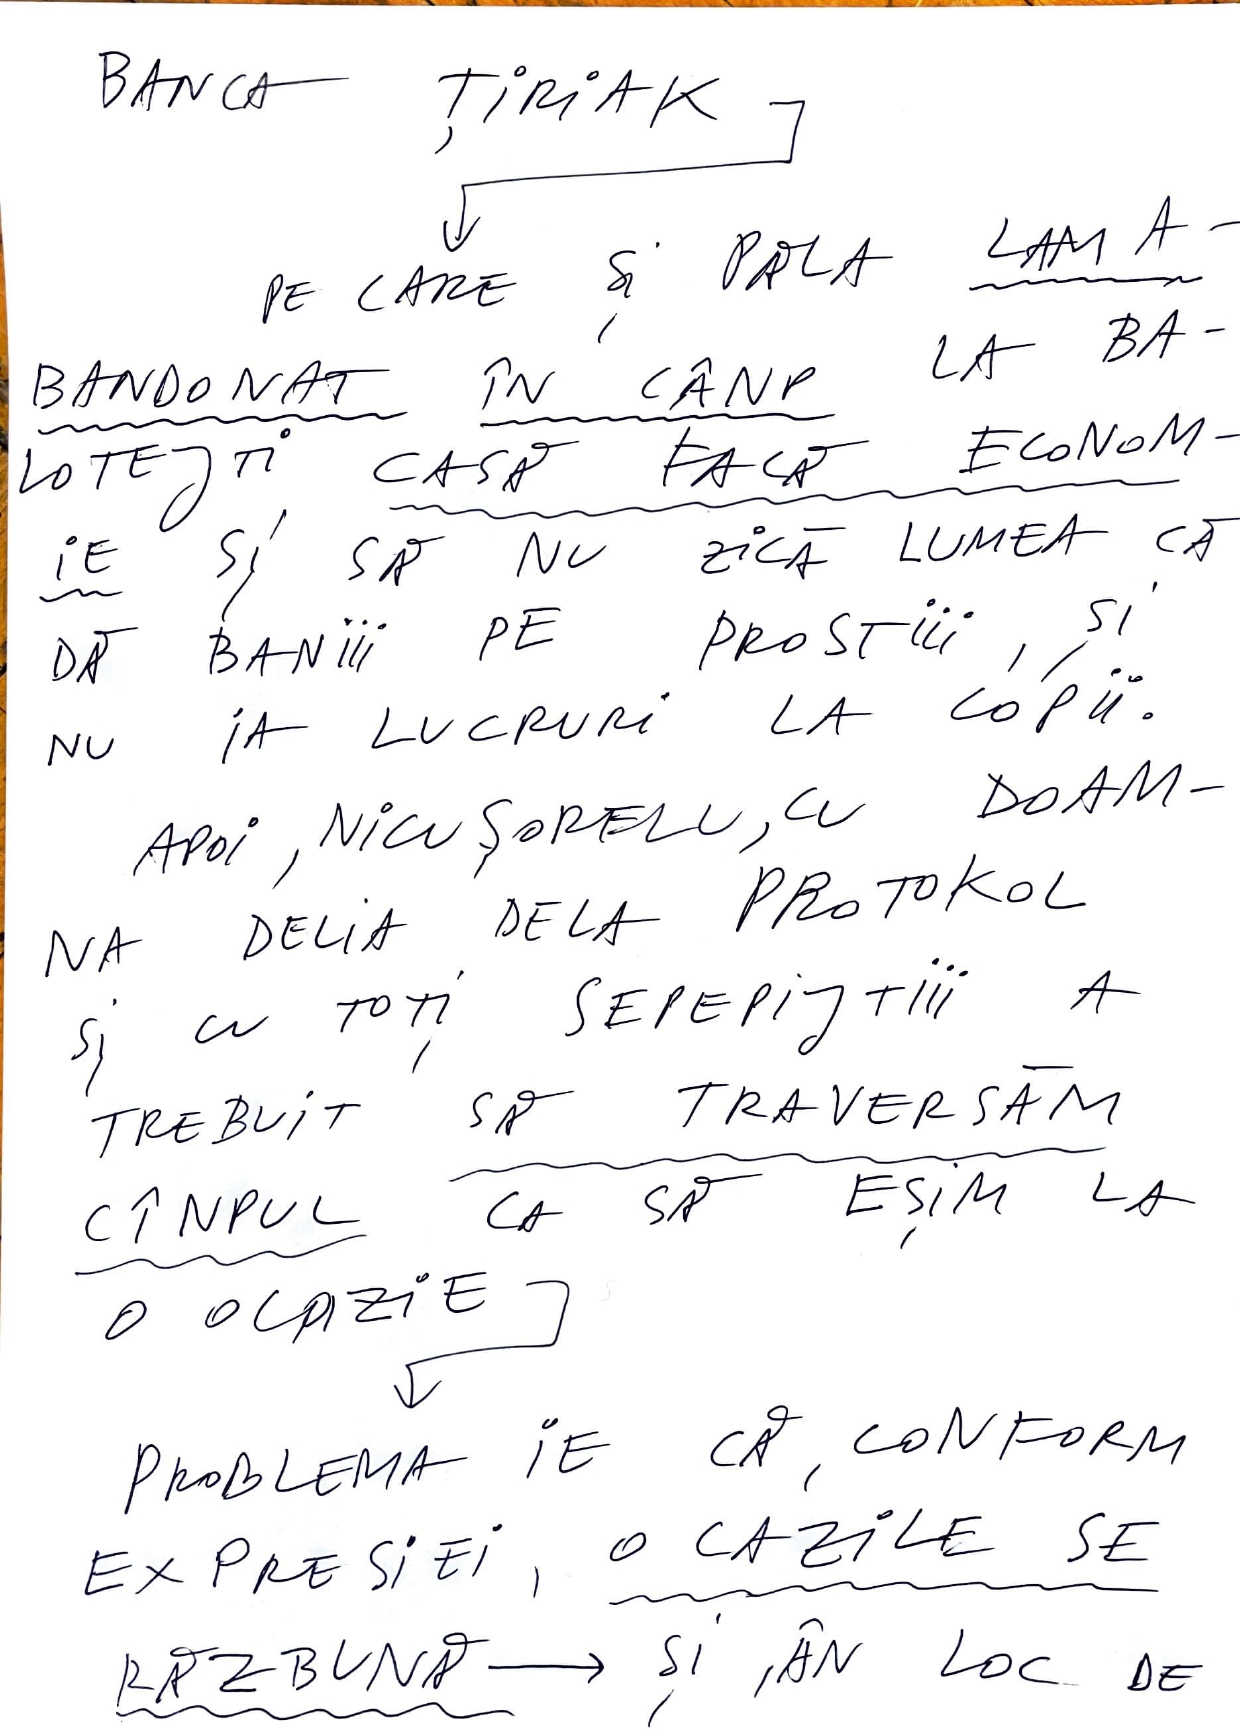 BANCA ȚIRIAK
PE CARE ȘI PĂLA LAM A-
BANDONAT ÎN CÂNP LA BA-
LOTEȘTI CASĂ FACĂ ECONOM-
IE ȘI SĂ NU ZICĂ LUMEA CĂ
DĂ BANIII PE PROSTIII, ȘI
NU IA LUCRURI LA COPII.
APOI, NICUȘORELU, CU DOAM-
NA DELIA DELA PROTOKOL
ȘI CU TOȚI SEPEPIȘTIII A
TREBUIT SĂ TRAVERSĂM
CÎNPUL CA SĂ EȘIM LA
O OCAZIE
PROBLEMA IE CĂ, CONFORM
EXPRESIEI, OCAZILE SE
RĂZBUNĂ → ȘI, ÂN LOC DE